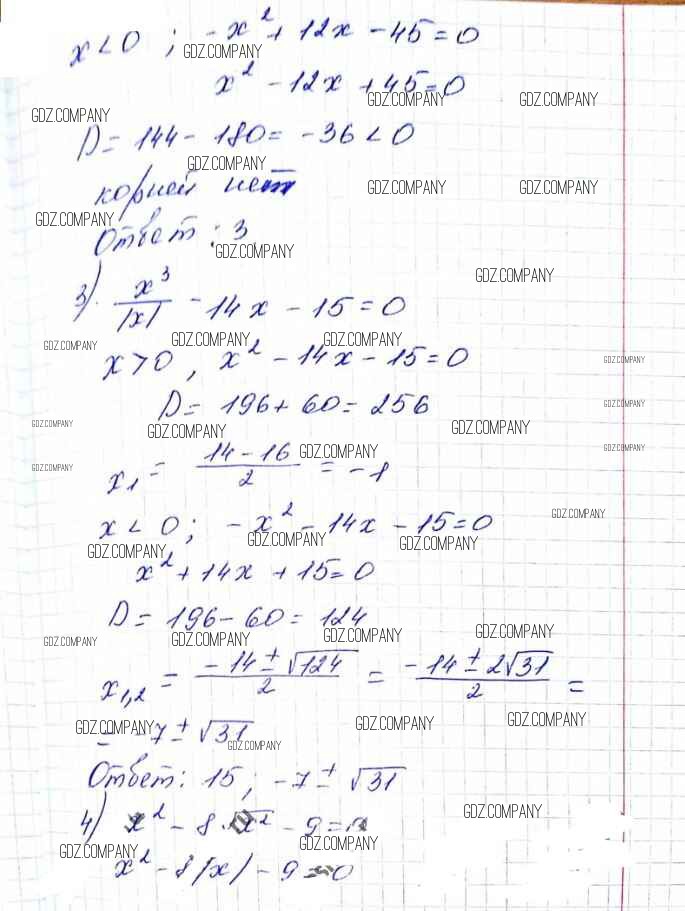 x < 0 ; -x² + 12x - 45 = 0
GDZ.COMPANY
x² - 12x + 45 = 0
GDZ.COMPANY GDZ.COMPANY
GDZ.COMPANY
D = 144 - 180 = -36 < 0
GDZ.COMPANY
корней нет GDZ.COMPANY GDZ.COMPANY
GDZ.COMPANY
Ответ: 3
GDZ.COMPANY
GDZ.COMPANY
3) x³/|x| - 14x - 15 = 0
GDZ.COMPANY GDZ.COMPANY GDZ.COMPANY
x > 0, x² - 14x - 15 = 0 GDZ.COMPANY
D = 196 + 60 = 256 GDZ.COMPANY
GDZ.COMPANY GDZ.COMPANY GDZ.COMPANY
GDZ.COMPANY GDZ.COMPANY
x₁ = (14 - 16)/2 = -1
GDZ.COMPANY
GDZ.COMPANY
x < 0; -x² - 14x - 15 = 0
GDZ.COMPANY GDZ.COMPANY GDZ.COMPANY
x² + 14x + 15 = 0
D = 196 - 60 = 124
GDZ.COMPANY GDZ.COMPANY GDZ.COMPANY GDZ.COMPANY
x₁,₂ = (-14 ± √124)/2 = (-14 ± 2√31)/2 =
GDZ.COMPANY GDZ.COMPANY GDZ.COMPANY
= -7 ± √31
GDZ.COMPANY
Ответ: 15; -7 ± √31
GDZ.COMPANY
4) x² - 8·√x² - 9 = 0
GDZ.COMPANY GDZ.COMPANY
x² - 8|x| - 9 = 0